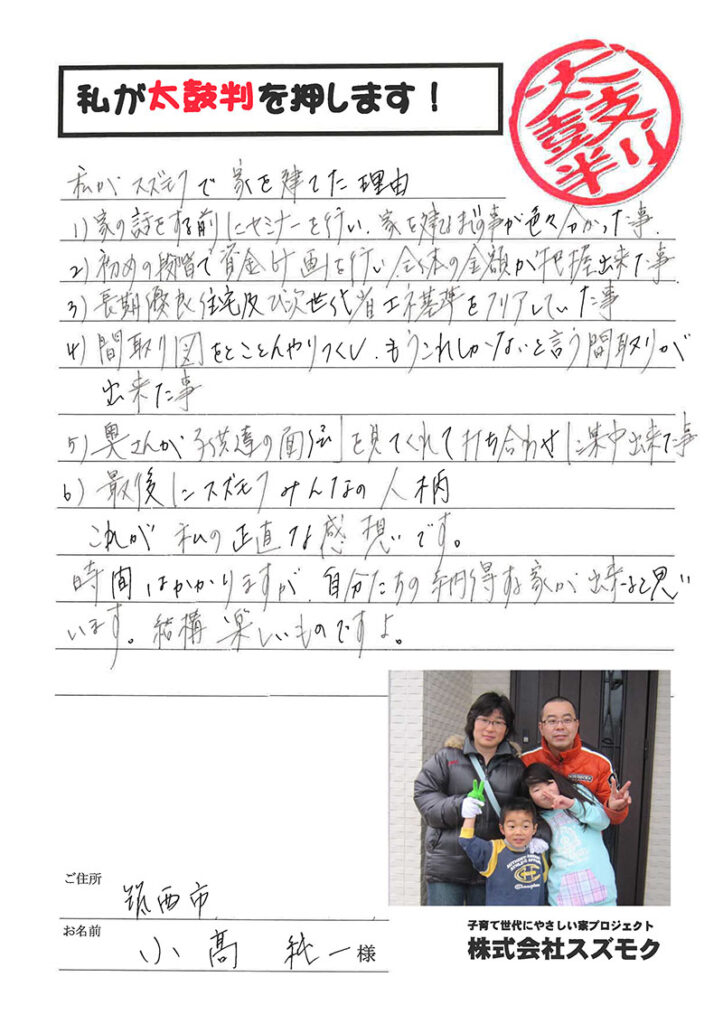 私が太鼓判を押します！
太鼓判
私がスズモクで家を建てた理由
1)家の話をする前にセミナーを行い、家を建てるまでの事が色々分かった事.
2)初めの段階で資金計画を行い全体の金額が把握出来た事
3)長期優良住宅及び次世代省エネ基準をクリアしていた事
4)間取り図をとことんやりつくし、もうこれしかないと言う間取りが
出来た事
5)奥さんが子供達の面倒を見てくれて打ち合わせに集中出来た事
6)最後にスズモクみんなの人柄
これが私の正直な感想です。
時間はかかりますが、自分たちの納得する家が出来ると思い
います。結構楽しいものですよ。
ご住所 筑西市
お名前 小髙 純一様
子育て世代にやさしい家プロジェクト
株式会社スズモク
Champion